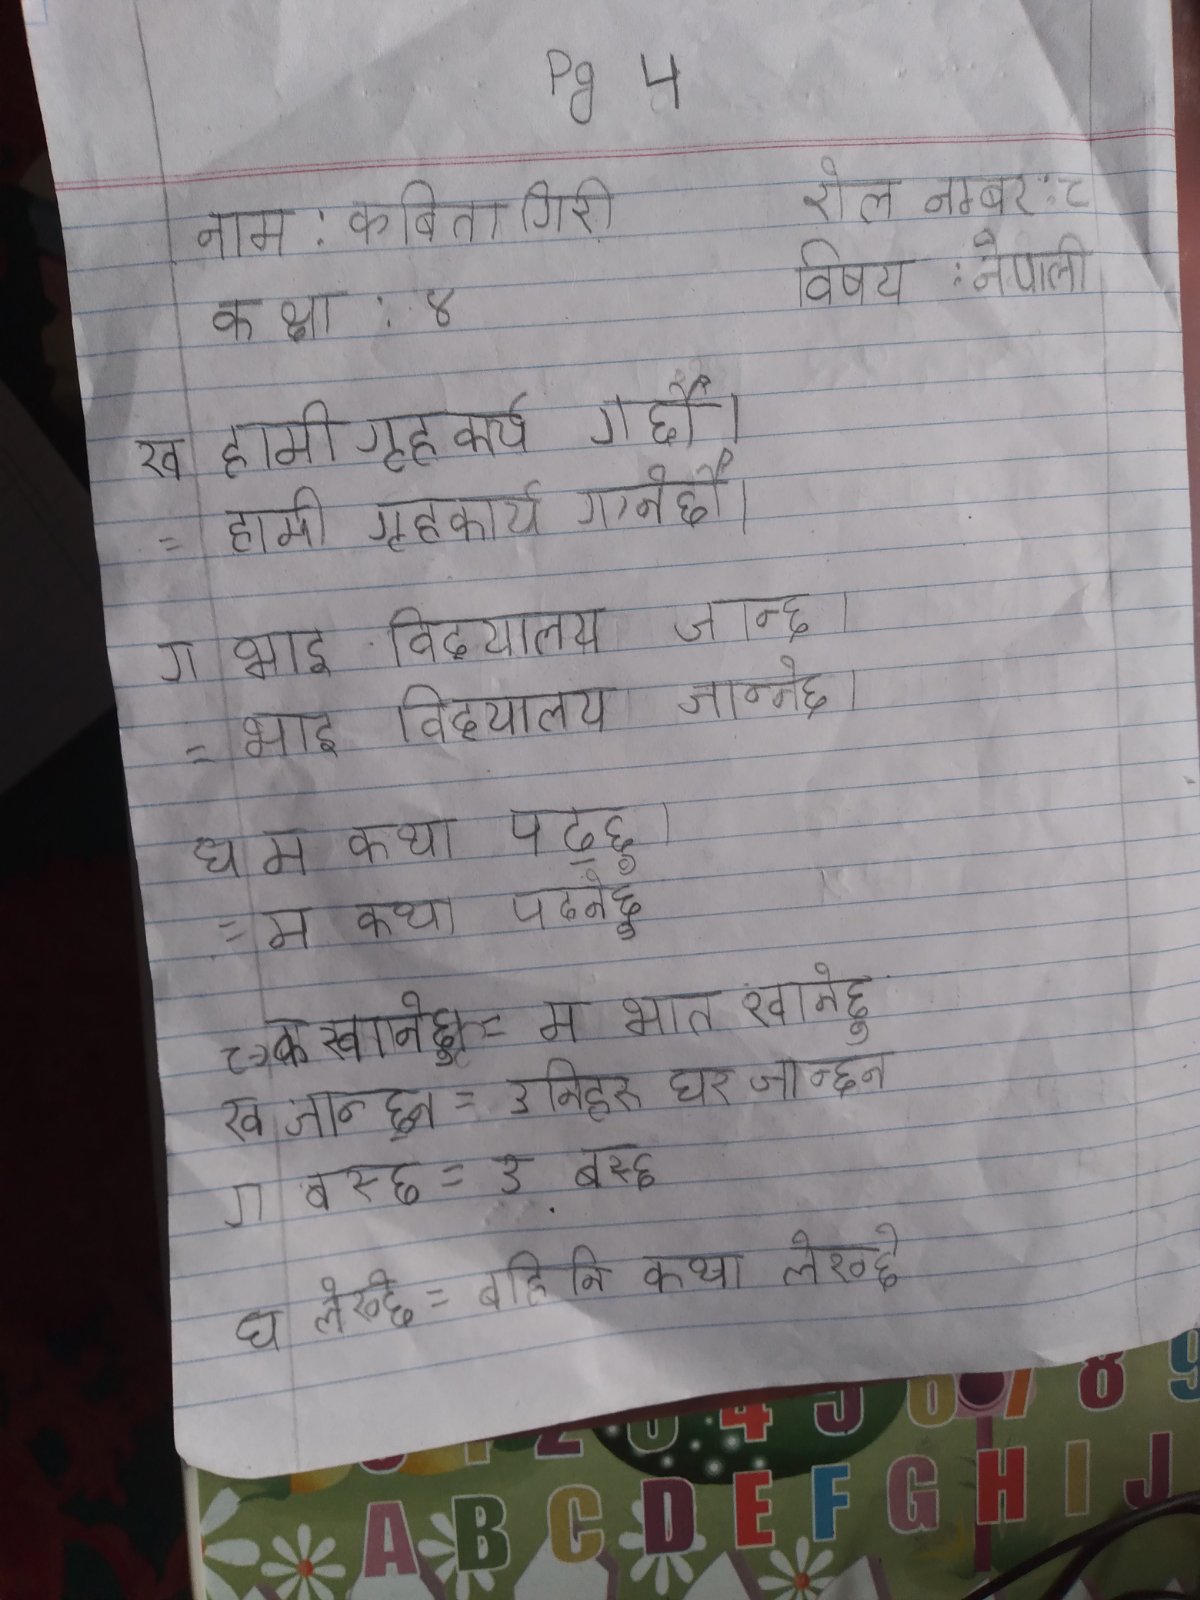 Pg 4
नाम : कबिता गिरी
रोल नम्बर : ८
कक्षा : ४
विषय : नेपाली
ख हामी गृहकार्य गर्छौं।
= हामी गृहकार्य गर्नेछौं।
ग भाइ विद्यालय जान्छ।
= भाइ विद्यालय जान्नेछ।
घ म कथा पढ्छु।
= म कथा पढनेछु
क खानेछु = म भात खानेछु
ख जान्छन = उनिहरु घर जान्छन
ग बस्छ = उ बस्छ
घ लेख्छे = बहिनि कथा लेख्छे
1 2 3 4 5 6 7 8 9
A B C D E F G H I J